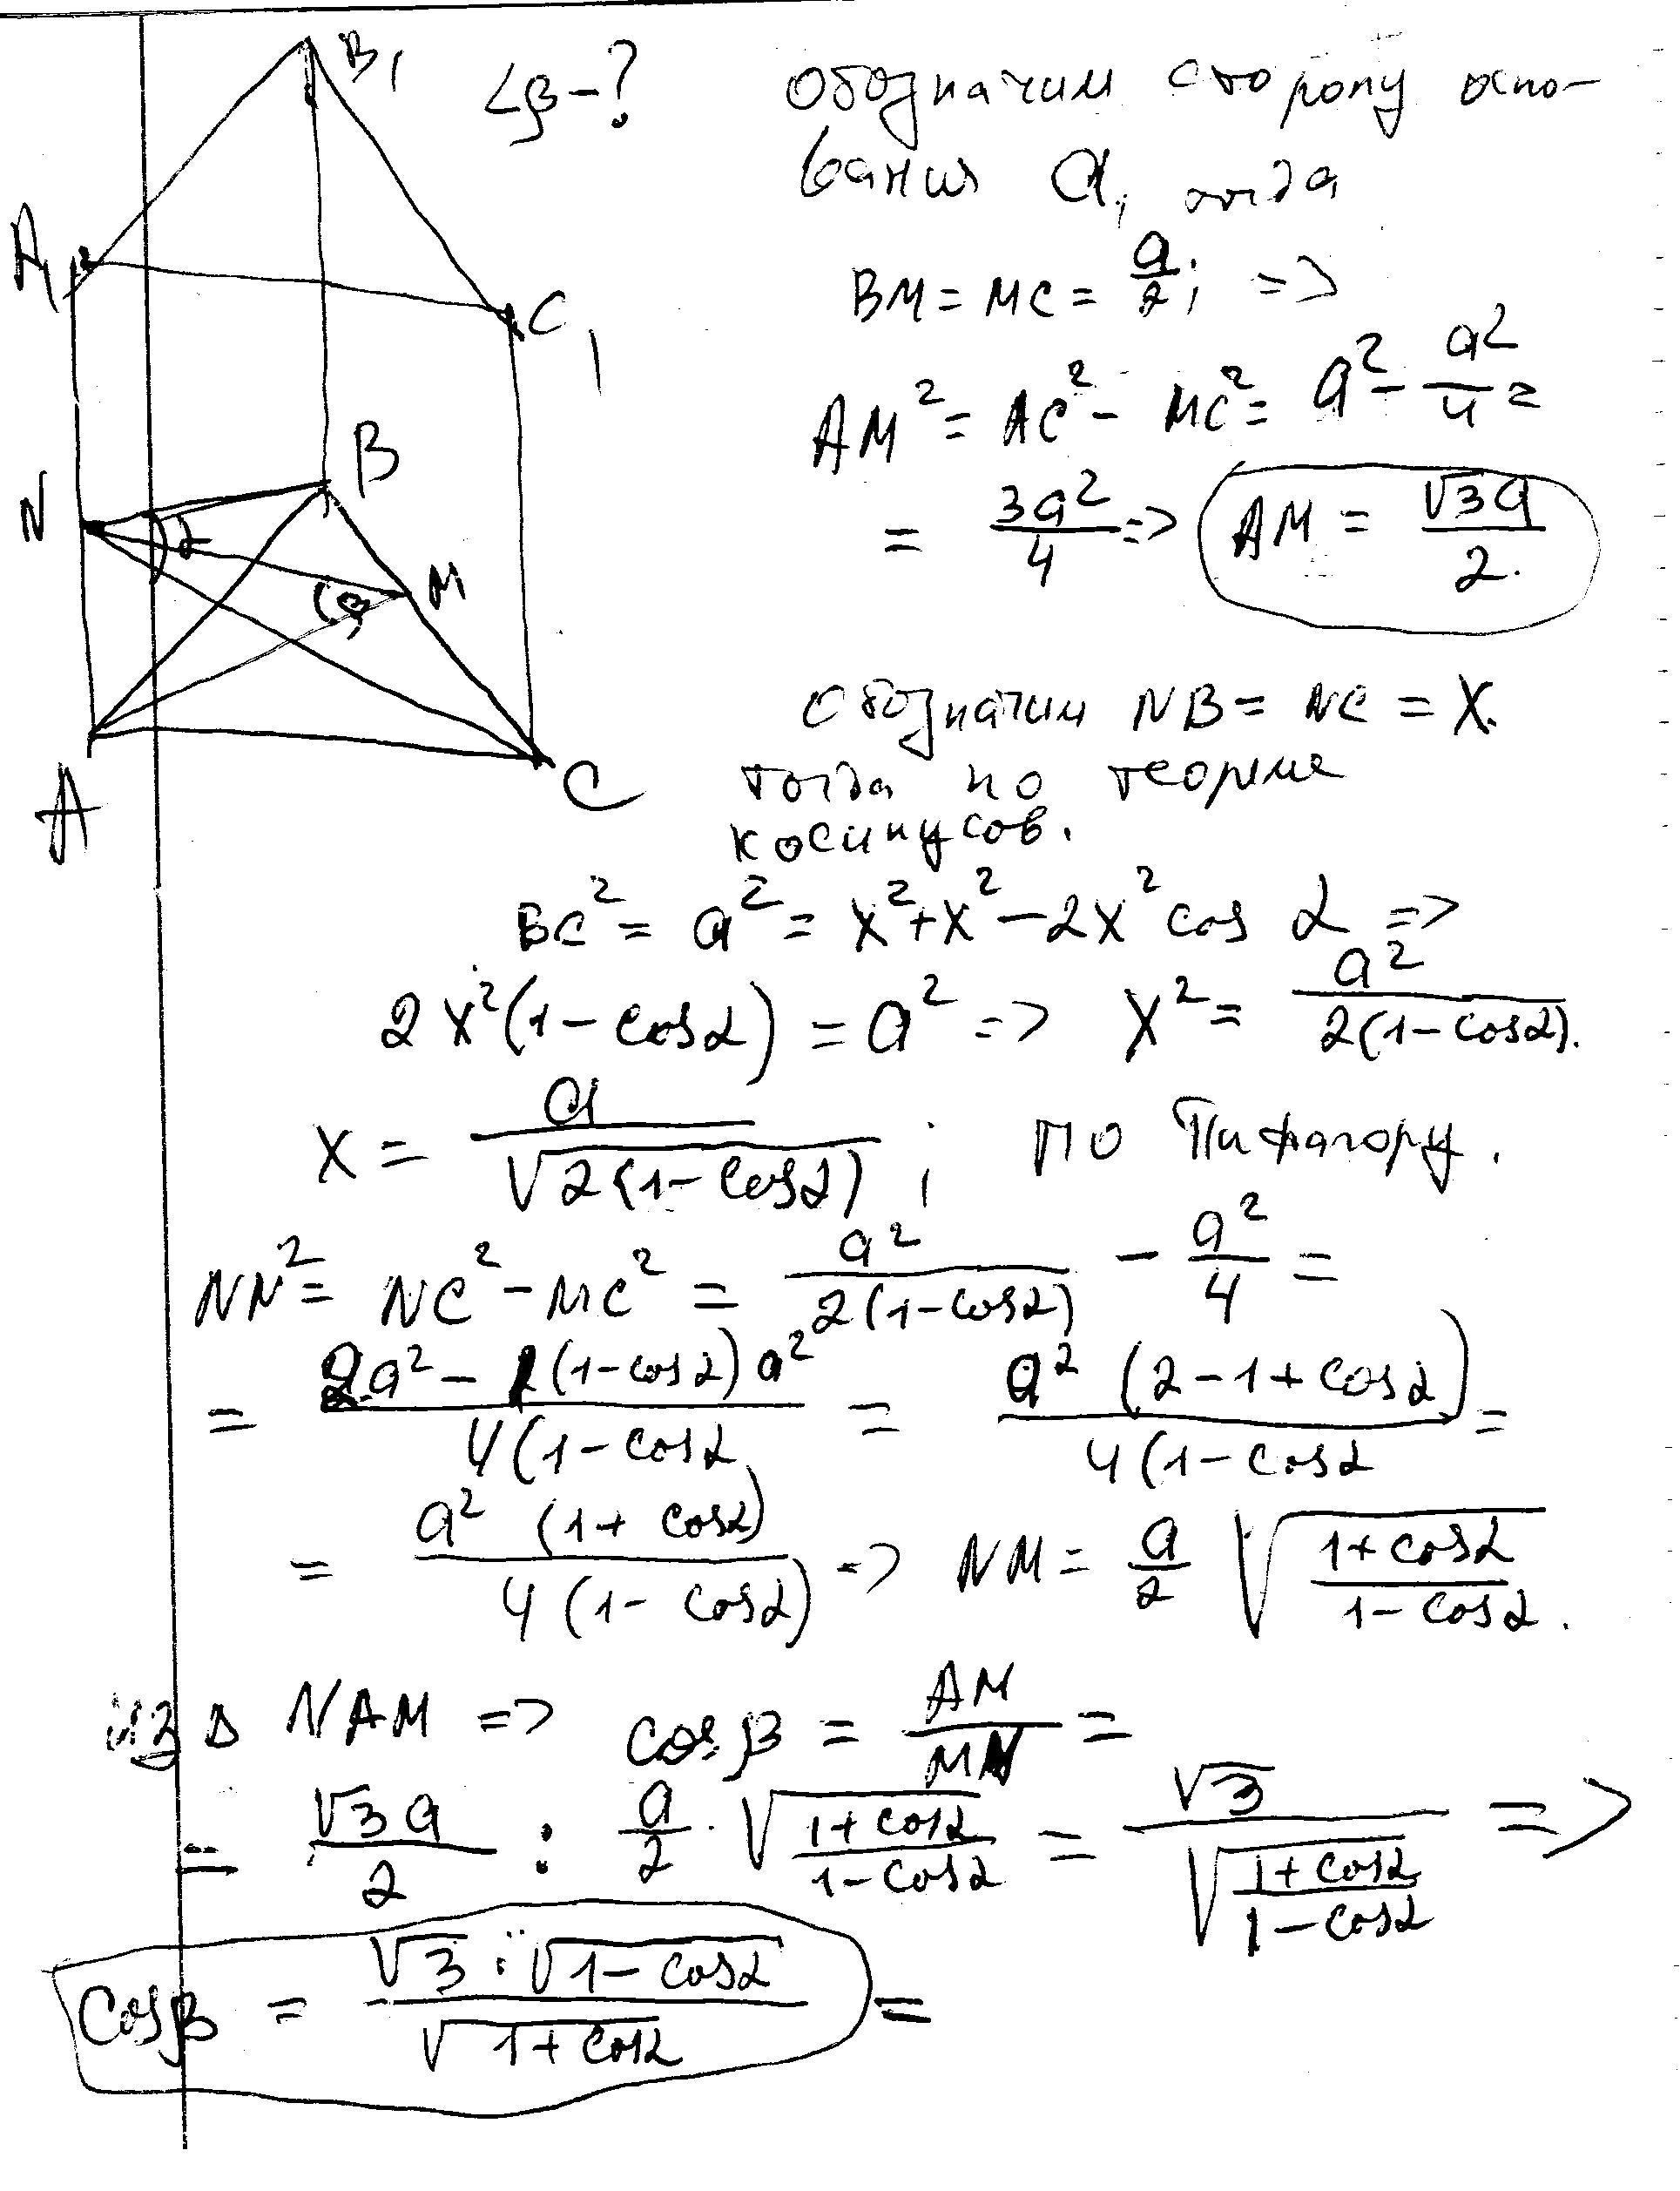 B₁
∠β-?
Обозначим сторону осно-
вания a, тогда
A₁
BM = MC = a/2; =>
C₁
AM² = AC² - MC² = a² - a²/4 =
B
= 3a²/4 => AM = √3a/2.
N
α
M
β
Обозначим NB = NC = X.
A
C
тогда по теореме
косинусов.
BC² = a² = x² + x² - 2x² cos α =>
2x²(1 - cosα) = a² => x² = a²/2(1-cosα).
x = a/√2(1-cosα) ; по Пифагору.
NN² = NC² - MC² = a²/2(1-cosα) - a²/4 =
= 2a² - 1(1-cosα)a²/4(1-cosα = a²(2-1+cosα)/4(1-cosα =
= a²(1+cosα)/4(1-cosα) => NM = a/2 √1+cosα/1-cosα.
из Δ NAM => cosβ = AM/MN =
= √3a/2 : a/2 · √1+cosα/1-cosα = √3/√1+cosα/1-cosα =>
cosβ = √3 · √1-cosα/√1+cosα =